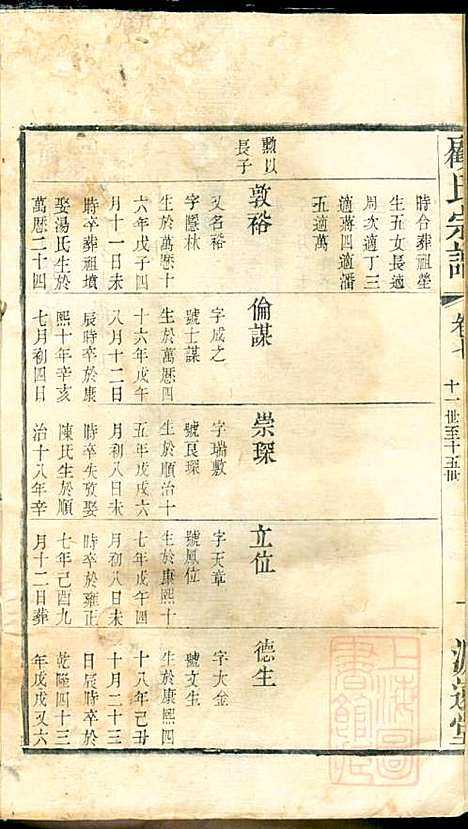 氏宗譜
卷七
十一世至十五世
時合葬祖塋
生五女長適
周次適丁三
適蔣四適潘
五適萬
勲以
長子
敦裕
又名裕
字隱林
生於萬曆十
六年戊子四
月十一日未
時卒葬祖墳
娶湯氏生於
萬曆二十四
倫謀
字成之
號士謀
生於萬曆四
十六年戊午
八月十二日
辰時卒於康
熙十年辛亥
七月初四日
崇琛
字瑞敷
號良琛
生於順治十
五年戊戌六
月初八日未
時卒失攷娶
陳氏生於順
治十八年辛
立位
字天章
號鳳位
生於康熙十
七年戊午四
月初八日未
時卒於雍正
七年己酉九
月十二日葬
德生
字大金
號文生
生於康熙四
十八年己丑
十月二十三
日辰時卒於
乾隆四十三
年戊戌又六
上海圖書館藏